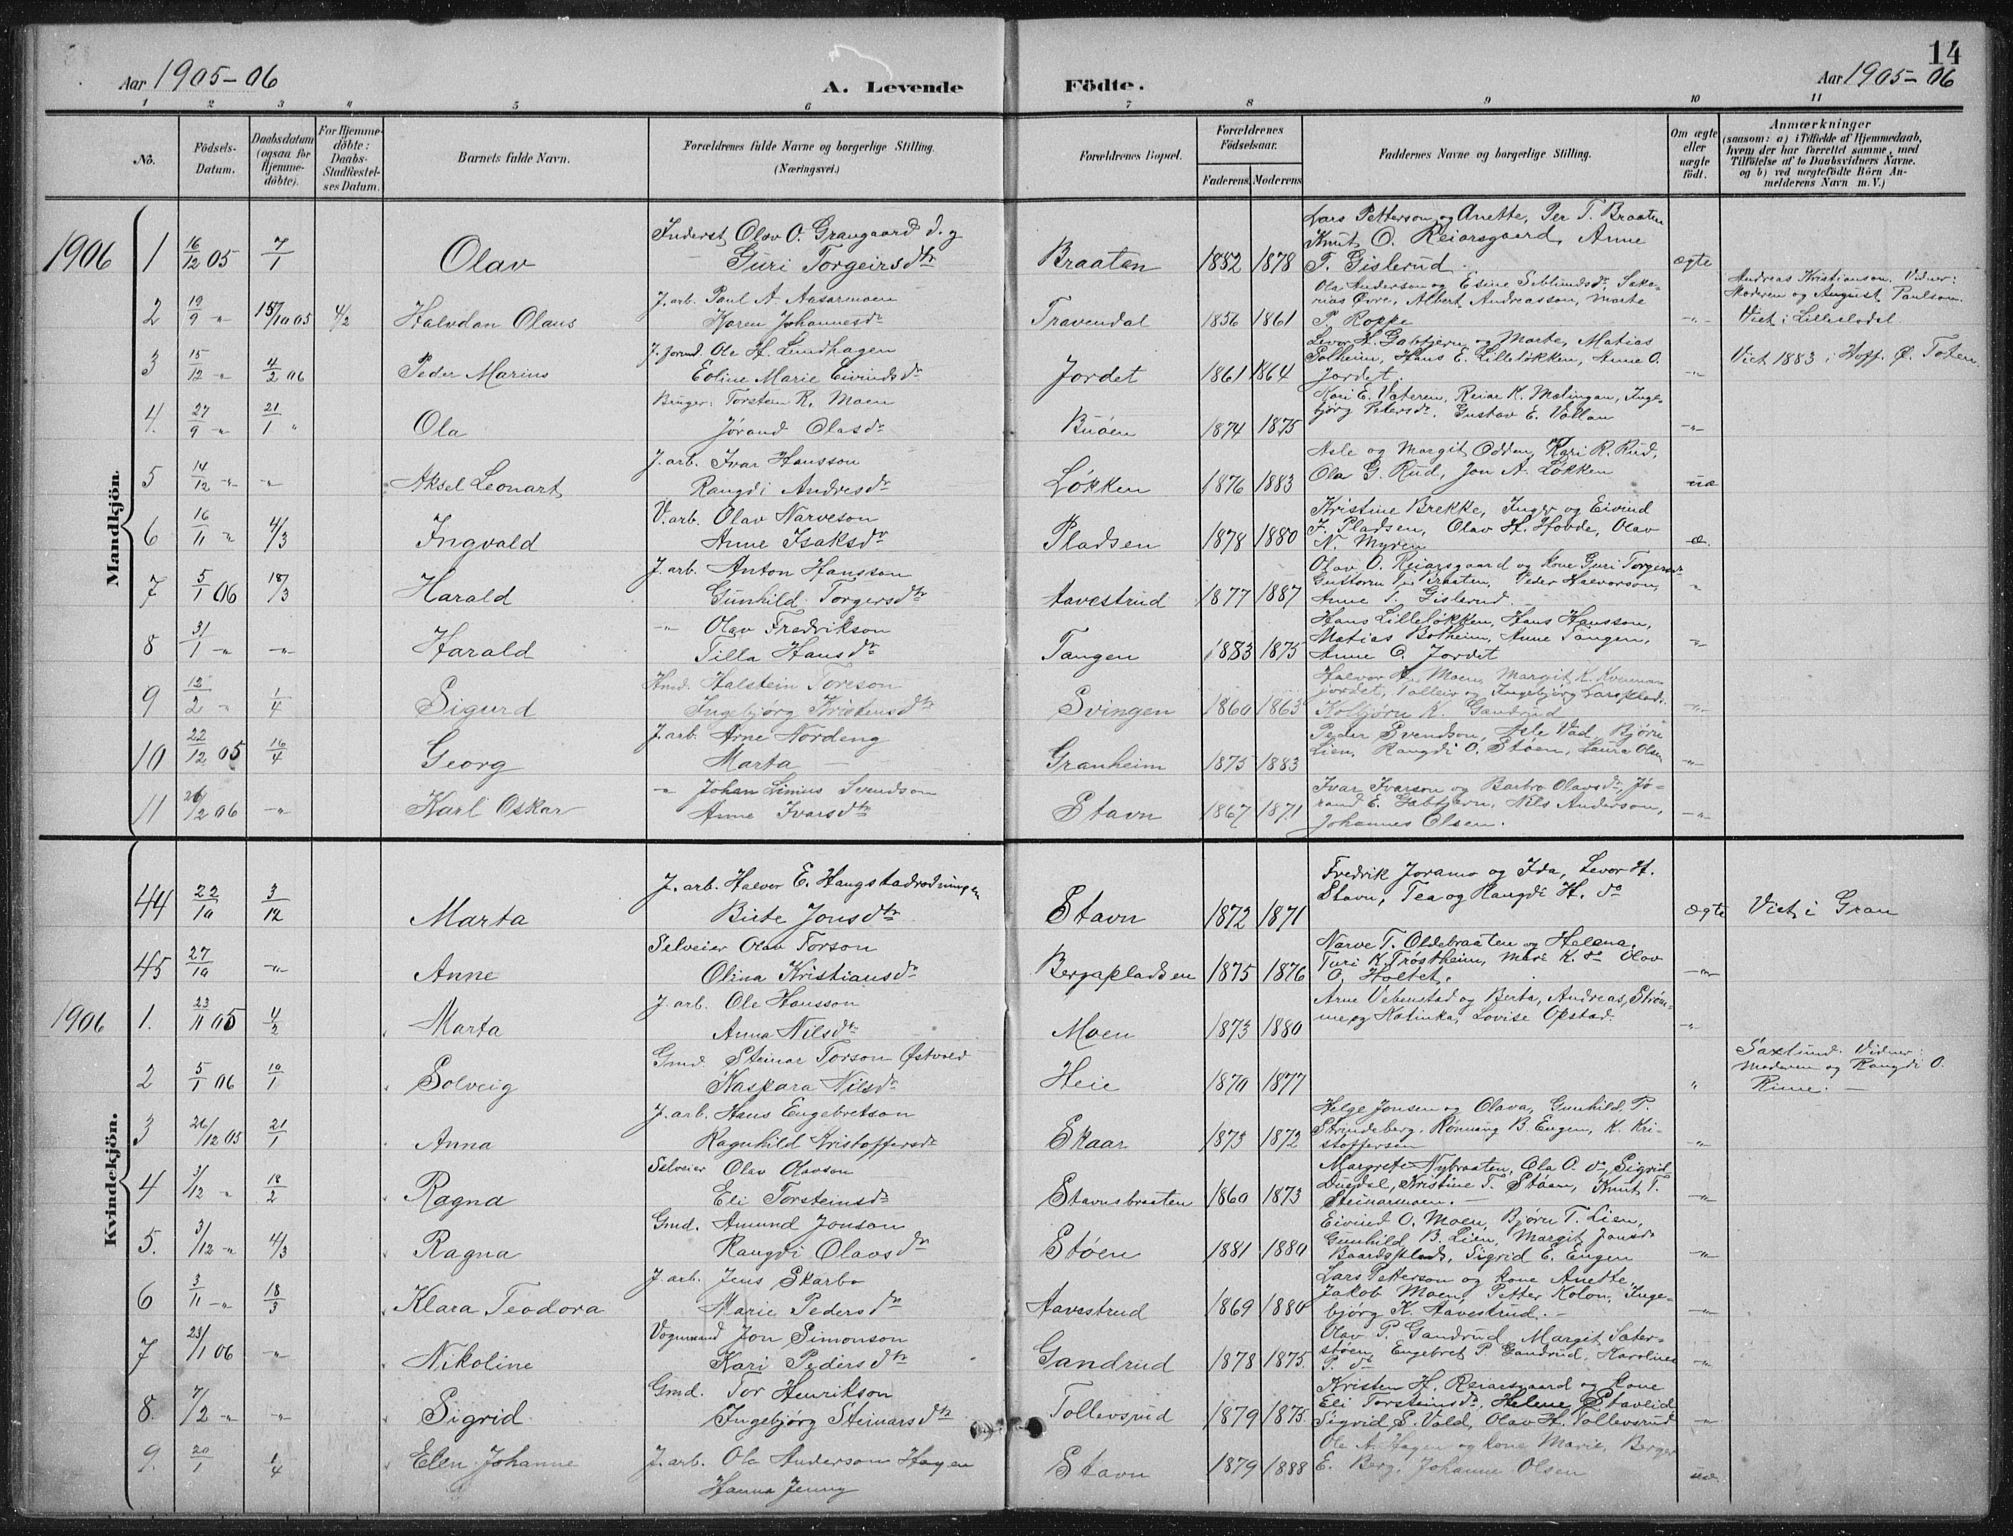 14
Aar 1905-06 A. Levende Födte. Aar 1905-06
1 2 3 4 5 6 7 8 9 10 11
No.
Födsels-
Datum.
Daabsdatum
(ogsaa for
Hjemme-
döbte).
For Hjemme-
döbte:
Daabs-
Stadfæstel-
ses Datum.
Barnets fulde Navn.
Forældrenes fulde Navne og borgerlige Stilling.
(Næringsvei.)
Forældrenes Bopæl.
Forældrenes
Födselsaar.
Faderens. Moderens.
Faddernes Navne og borgerlige Stilling.
Om ægte
eller
uægte
født.
Anmærkninger
(saasom: a) i Tilfælde af Hjemmedaab,
hvem der har forrettet samme, med
Tilföielse af to Daabsvidners Navne.
og b) ved uægtefödte Börn An-
melderens Navn m. V.)
Mandkjön.
1906 1 16/12 05 7/1 Olav
Inderst Olav O. Grangaard d. y
Guri Torgeirsdtr
Braaten 1882 1878
Lars Petterson og Anette, Per T. Braaten
Knut O. Reiarsgaard, Anne
T. Gislerud
ægte
2 19/9 " 15/10 05 4/2 Halvdan Olaus
J. arb. Paul A. Aasarmoen
Karen Johannesdr
Travendal 1856 1861
Ola Anderson og Esine Siblundsdr, Saka-
rias Øvre, Albert Andreasson, Marte
P. Roppe
-"-
Andreas Kristianson. Vidner:
Moderen og August Paulson.
Viet i Lillelodal.
3 15/12 " 4/2 06 Peder Marius
J. form. Ole H. Lundhagen
Eoline Marie Eivindsdr
Jordet 1861 1864
Levor H. Gabbjern og Marte, Matias
Solheim, Hans E. Lilleløkken, Anne O.
Jordet.
-"-
Viet 1883 i Hoff. Ø. Toten
4. 27/9 " 21/1 " Ola
Bruger: Torsten R. Moen
Jørand Olasdr
Buøen 1874 1875
Kari E. Vateren, Reiar K. Mælingan, Inge-
bjørg Petersdr. Gustav E. Vollan
-"-
5 14/12 " -"- Aksel Leonart
J. arb. Ivar Hansson
Rangdi Andresdr
Løkken 1876 1883
Asle og Margit Odden, Kari R. Rud,
Ola G. Rud, Jon A. Løkken
uæ
6 16/11 " 4/3 Ingvald
V. arb. Olav Narveson
Anne Isaksdr
Pladsen 1878 1880
Kristine Brekke, Inger og Eivind
F. Pladsen, Olav H. Hovde, Olav
N. Myren
æ.
7 5/1 06 18/3 Harald
J. arb. Anton Hansson
Gunhild Torgersdtr
Aavestrud 1877 1887
Olav O. Reiarsgaard og kone Guri Torgersdr
Guttorm T. Braaten, Peder Halvorson,
Anne T. Gislerud.
"
8 31/1 " -"- Harald
-"- Olav Fredrikson
Tilla Hansdr
Tangen 1883 1875
Hans Lilleløkken, Hans Hansson,
Matias Bolheim, Anne Tangen,
Anne O. Jordet
"
9 12/2 " 1/4 Sigurd
Hmd. Halstein Toreson
Ingebjørg Kristensdtr
Svingen 1860 1863
Halvor H. Moen, Margit K.
jordet, Tolleiv og Ingebjørg Larsplads
Kolbjørn K. Gandrud
-"-
10 22/12 05 16/4 Georg
J. arb. Arne Nordeng
Marta —
Granheim 1875 1883
Peder Svendson, Asle Vad, Bjørn
Lien, Rangdi O. Støen, Laura Olsen
-"-
11 26/2 06 -"- Karl Oskar
" Johan Linius Svendson
Anne Ivarsdtr
Stavn 1867 1871
Ivar Ivarson og Barbro Olavsdr, Jø-
rand E. Gabbjern, Nils Anderson,
Johannes Olsen.
-"-
Kvindekjön.
44 22/10 3/12 Marta
J. arb. Halvor E. Haugstadrødningen
Birte Jonsdtr
Stavn 1872 1871
Fredrik Joramo og Ida, Levor H.
Stavn, Tea og Rangdi H. do
ægte Viet i Gran
45 27/10 -"- Anne
Selveier Olav Torson
Olina Kristiansdr
Bergapladsen 1875 1876
Narve T. Oldebraaten og Helena,
Turi K. Trøstheim, Mari K. do Olav
O. Holtet.
-"-
1906 1. 23/11 05 4/2 Marta
J. arb. Ole Hansson
Anna Nilsdtr
Moen 1873 1880
Arne Vebenstad og Berta, Andreas Strøm-
me og Katinka, Lovise Opstad.
"
2 5/1 06 10/1 Solveig
Gmd. Steinar Torson Østvold
Kaspara Nilsdr
Heie 1870 1877
"
Saxlund. Vidner:
Moderen og Rangdi O.
Rime. —
3 26/12 05 21/1 Anna
J. arb. Hans Engebretson
Ragnhild Kristoffersdr
Skaar 1873 1872
Helge Jonsen og Olava, Gunhild T.
Strindeberg, Rønnaug B. Eugen, K. Kri-
stoffersen
"
4 31/12 " 18/2 Ragna
Selveier Olav Olavson
Eli Torsteinsdr
Stavnsbraaten 1860 1873
Margrete Nybraaten, Ola O. do, Sigrid
Duedal, Kristine T. Støen, Knut T.
Steinarmoen. —
-"-
5. 31/12 " 4/3 Ragna
Gmd. Amund Jonson
Rangdi Olavsdr
Støen 1881 1880
Eivind O. Moen, Bjørn T. Lien,
Gunhild B. Lien, Margit Jonsdr
Baardsplads, Sigrid E. Eugen
-"-
6 3/11 " 18/3 Klara Teodora
J. arb. Jens Skarbo
Marie Pedersdr
Aavestrud 1869 1880
Lars Petterson og kone Anette,
Jakob Moen, Petter Kolon, Inge-
bjørg K. Aavestrud. —
-"-
7 23/1 06 -"- Nikoline
Vognmand Jon Simonson
Kari Pedersdtr
Gandrud 1878 1875
Olav P. Gandrud, Margit Sater-
støen, Engebret P. Gandrud, Karoline
P. do
-"-
8. 7/2 " " Sigrid
Gmd. Tor Henrikson
Ingebjørg Steinarsdtr
Tollevsrud 1879 1875
Kristen H. Reiarsgaard og kone
Eli Torsteinsdr, Helene Stavlid
Sigrid S. Vold, Olav H. Tollevsrud
"
9. 20/1 1/4 Elen Johanne
J. arb. Ola Anderson Hagen
Hanna Jenny
Stavn 1879 1888
Ole A. Hagen og kone Marie, Berger
E. Berg, Johanne Olsen
uæ.